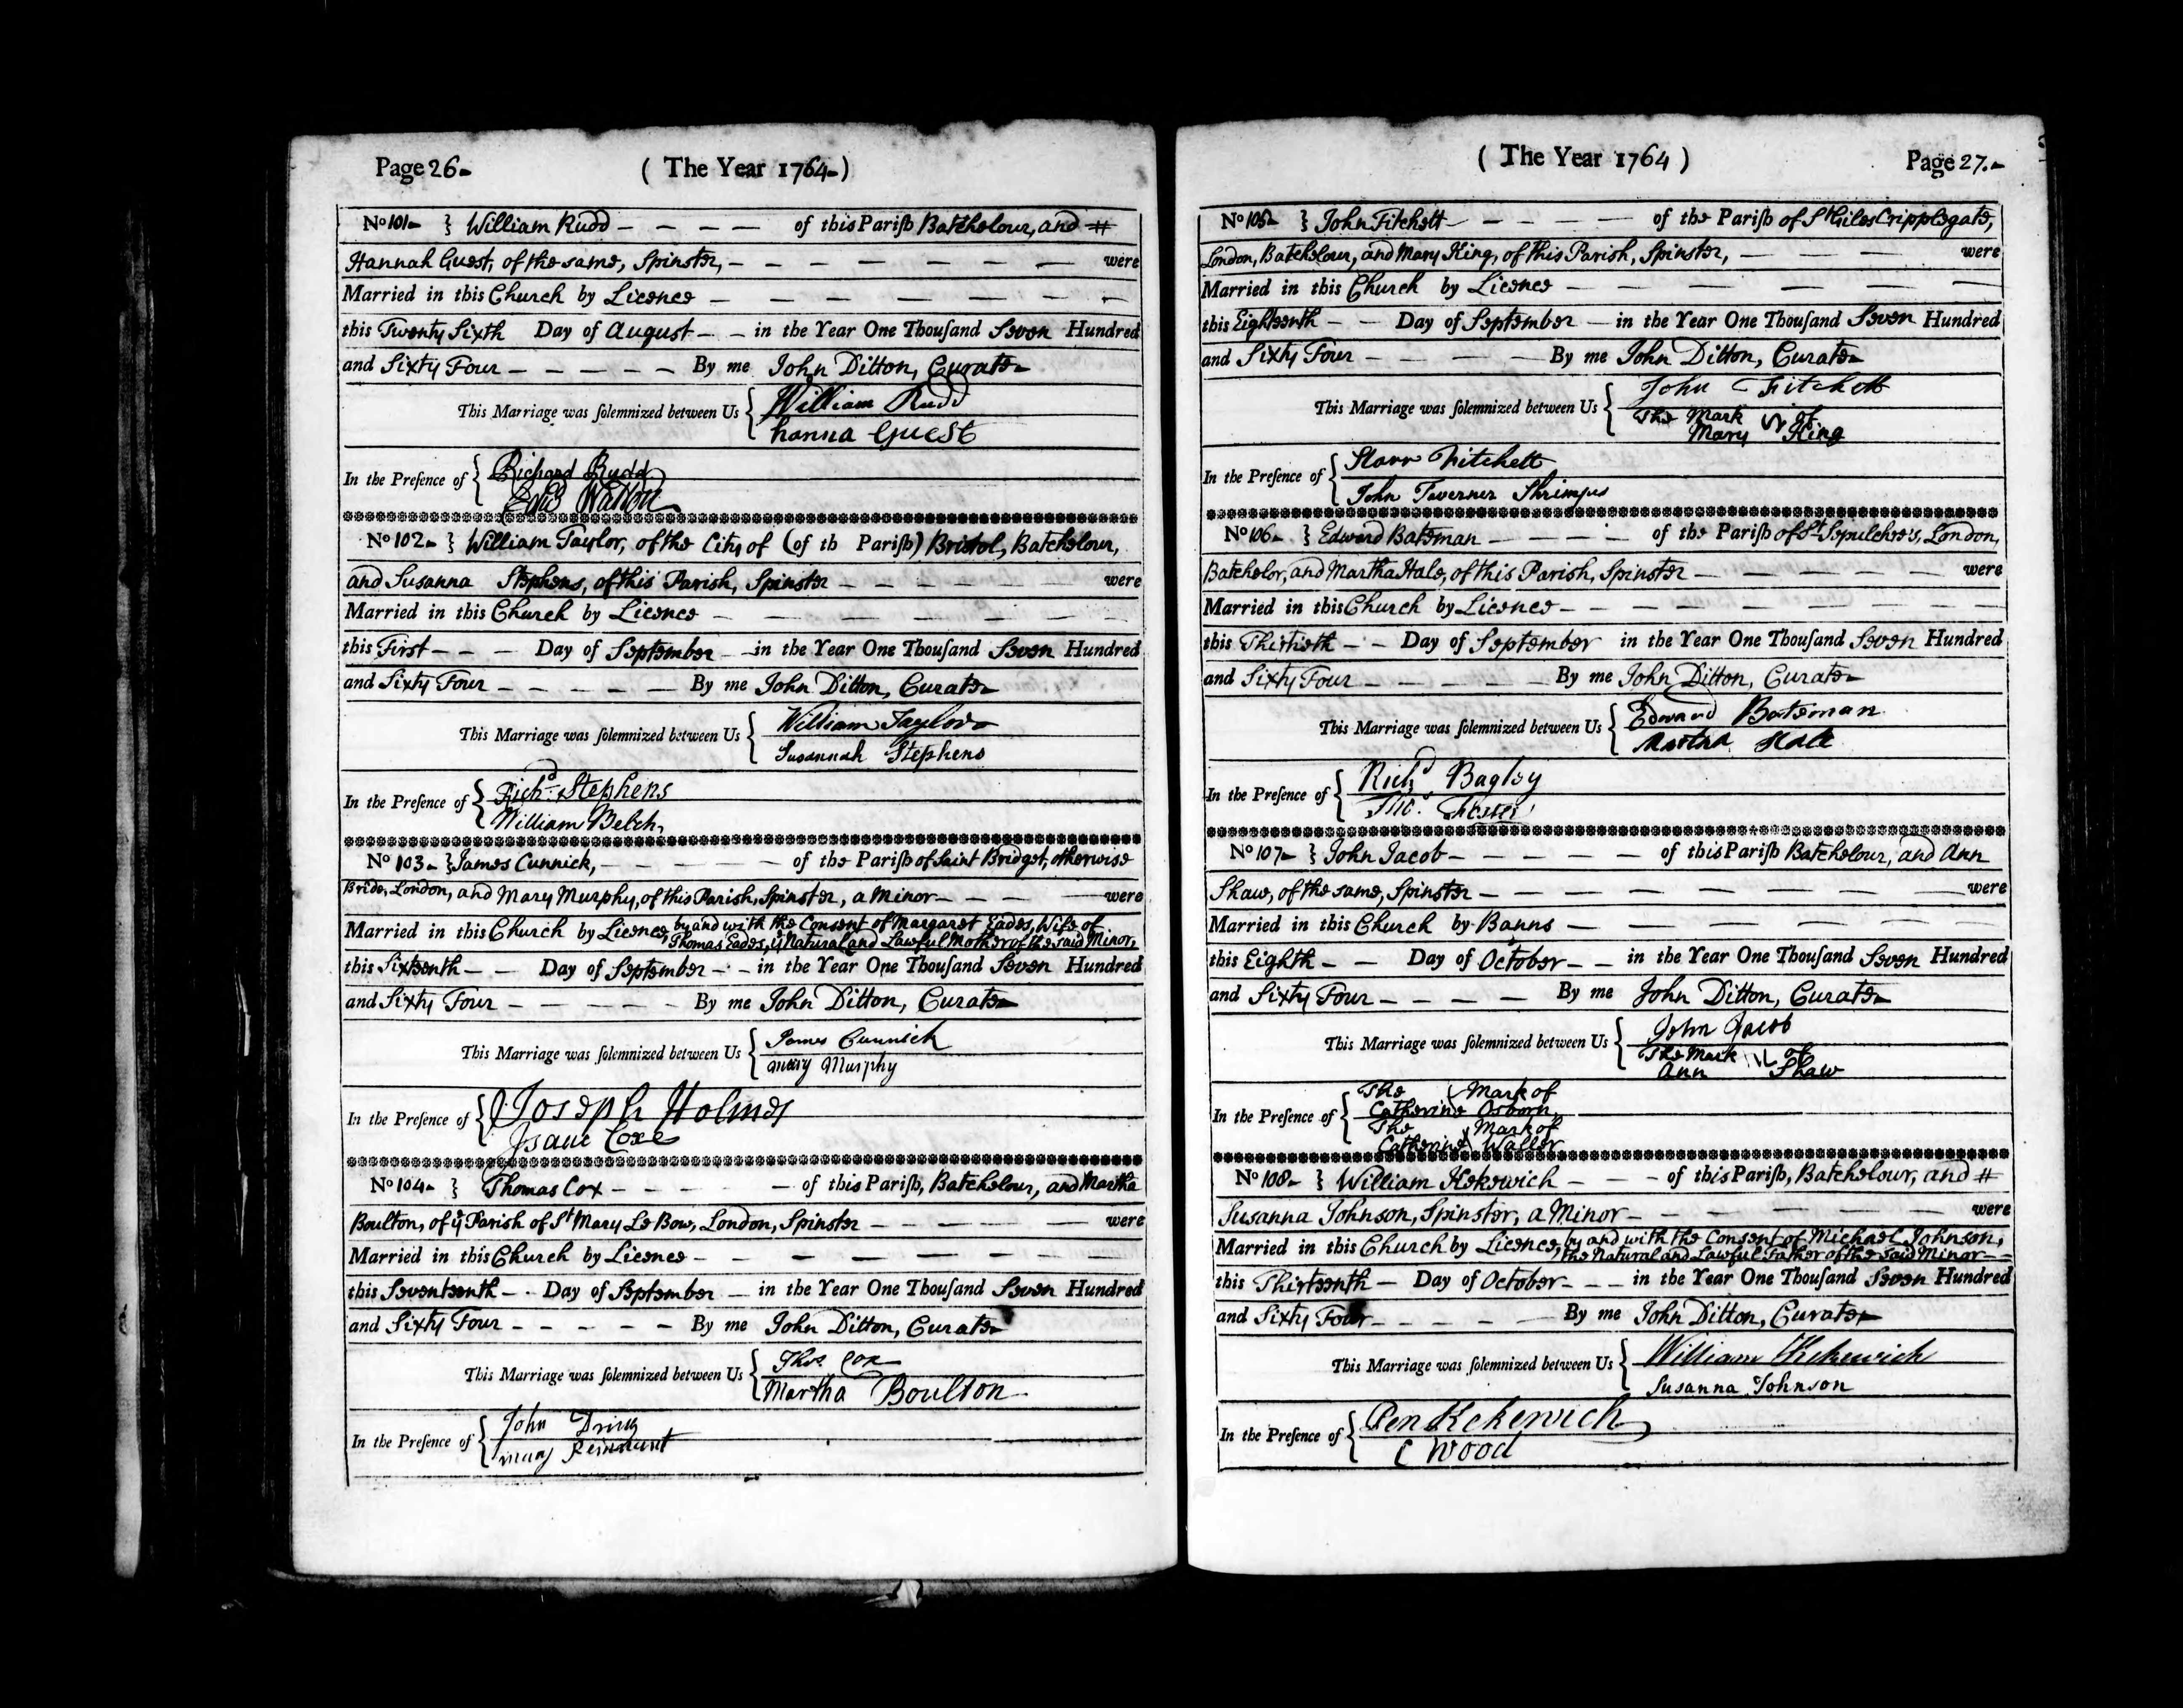 Page 26-
( The Year 1764-)
No 101- } William Rudd - - - - of this Parish Batchelour, and #
Hannah Guest, of the same, Spinster, - - - - - - - - were
Married in this Church by Licence - - - - - - - -
this Twenty Sixth Day of August - - in the Year One Thousand Seven Hundred
and Sixty Four - - - - - By me John Ditton, Curate-
This Marriage was solemnized between Us { William Rudd
hanna Guest
In the Presence of { Richard Rudd
No 102- } William Taylor, of the City of (of th Parish) Bristol, Batchelour,
and Susanna Stephens, of this Parish, Spinster - - - - - - were
Married in this Church by Licence - - - - - - - -
this First - - - Day of September - - in the Year One Thousand Seven Hundred
and Sixty Four - - - - - By me John Ditton, Curate-
This Marriage was solemnized between Us { William Taylor
Susannah Stephens
In the Presence of { Richd. Stephens
William Belch
No 103- } James Cunnick, - - - - - of the Parish of Saint Bridget, otherwise
Bride, London, and Mary Murphy, of this Parish, Spinster, a Minor - - - - were
Married in this Church by Licence, by and with the Consent of Margaret Eades, Wife of
Thomas Eades, ye Natural and Lawful Mother of the said Minor,
this Sixteenth - - Day of September - - in the Year One Thousand Seven Hundred
and Sixty Four - - - - - By me John Ditton, Curate-
This Marriage was solemnized between Us { James Cunnick
mary Murphy
In the Presence of { Joseph Holmes
Isaac Coxe
No 104- } Thomas Cox - - - - - of this Parish, Batchelour, and Martha
Boulton, of ye Parish of St Mary Le Bow, London, Spinster - - - - - were
Married in this Church by Licence - - - - - - - -
this Seventeenth - - Day of September - in the Year One Thousand Seven Hundred
and Sixty Four - - - - - By me John Ditton, Curate-
This Marriage was solemnized between Us { Thos. Cox
Martha Boulton
In the Presence of { John
mary
( The Year 1764 )
Page 27.-
No 105- } John Fitchett - - - - of the Parish of St Giles Cripplegate,
London, Batchelour, and Mary King, of this Parish, Spinster, - - - - were
Married in this Church by Licence - - - - - - -
this Eighteenth - - Day of September - in the Year One Thousand Seven Hundred
and Sixty Four - - - - - By me John Ditton, Curate-
This Marriage was solemnized between Us { John Fitchett
The Mark of
Mary King
In the Presence of { Starr Fitchett
John Taverner Shrimpus
No 106- } Edward Bateman - - - - of the Parish of St Sepulchre's, London,
Batchelor, and Martha Hale, of this Parish, Spinster - - - - - - were
Married in this Church by Licence - - - - - - - -
this Thirtieth - - Day of September in the Year One Thousand Seven Hundred
and Sixty Four - - - - - By me John Ditton, Curate-
This Marriage was solemnized between Us { Edward Bateman
Martha Hale
In the Presence of { Richd Bagley
Thos.
No 107- } John Jacob - - - - - of this Parish Batchelour, and Ann
Shaw, of the same, Spinster - - - - - - - - were
Married in this Church by Banns - - - - - - -
this Eighth - - Day of October - - in the Year One Thousand Seven Hundred
and Sixty Four - - - - By me John Ditton, Curate-
This Marriage was solemnized between Us { John Jacob
The Mark of
Ann Shaw
In the Presence of { The Mark of
Catherine Osborn
The Mark of
Catherine Waller
No 108- } William Kekewich - - - of this Parish, Batchelour, and #
Susanna Johnson, Spinster, a Minor - - - - - - were
Married in this Church by Licence, by and with the Consent of Michael Johnson,
the Natural and Lawful Father of the said Minor - -
this Thirteenth - Day of October - - - in the Year One Thousand Seven Hundred
and Sixty Four - - - - - By me John Ditton, Curate-
This Marriage was solemnized between Us { William Kekewich
Susanna Johnson
In the Presence of { Pen Kekewich
C Wood